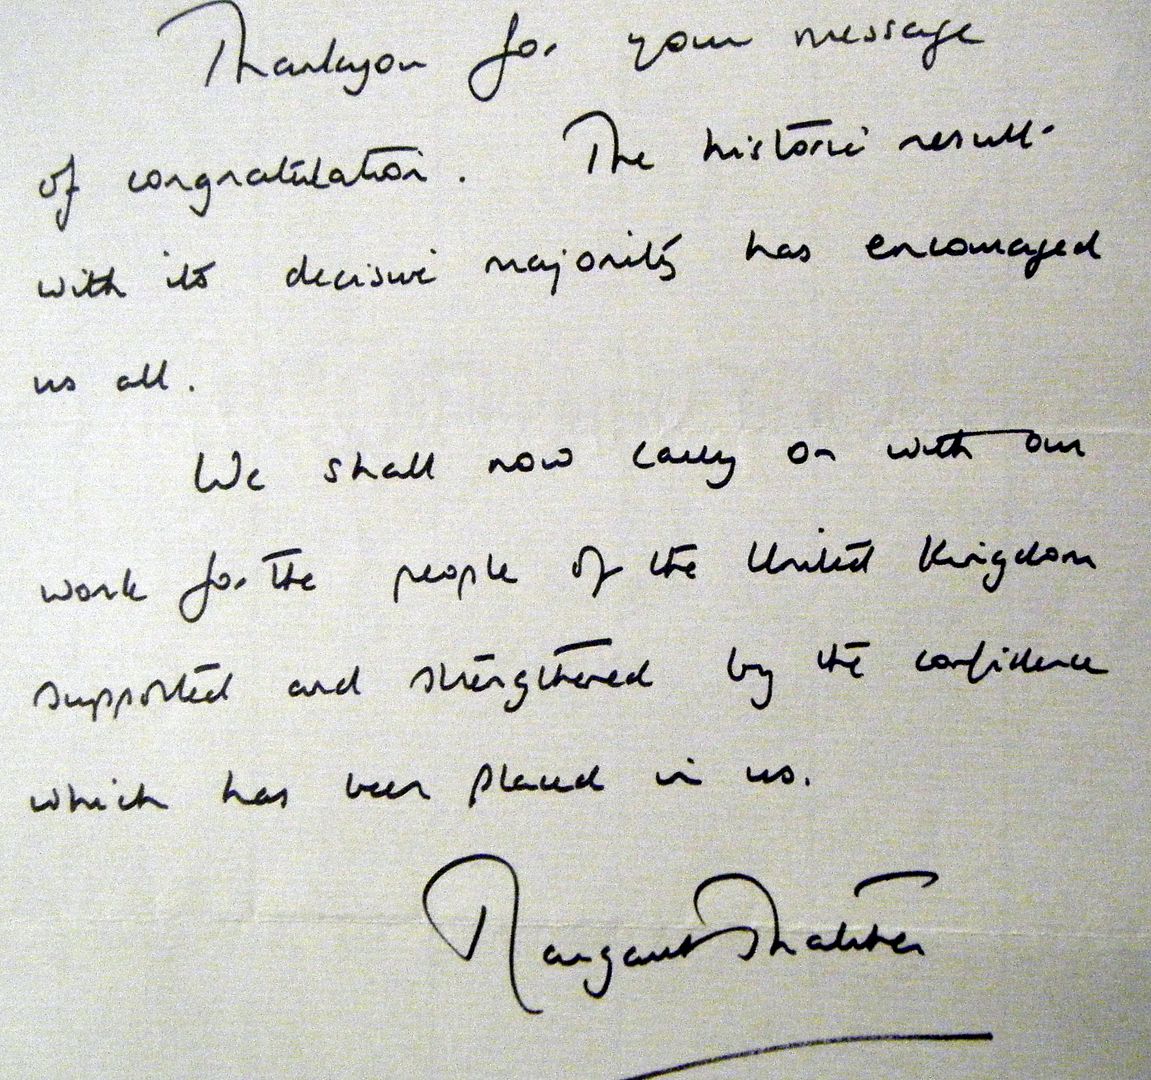 Thankyou for your message
of congratulation. The historic result
with its decisive majority has encouraged
us all.
We shall now carry on with our
work for the people of the United Kingdom
supported and strengthened by the confidence
which has been placed in us.
Margaret Thatcher